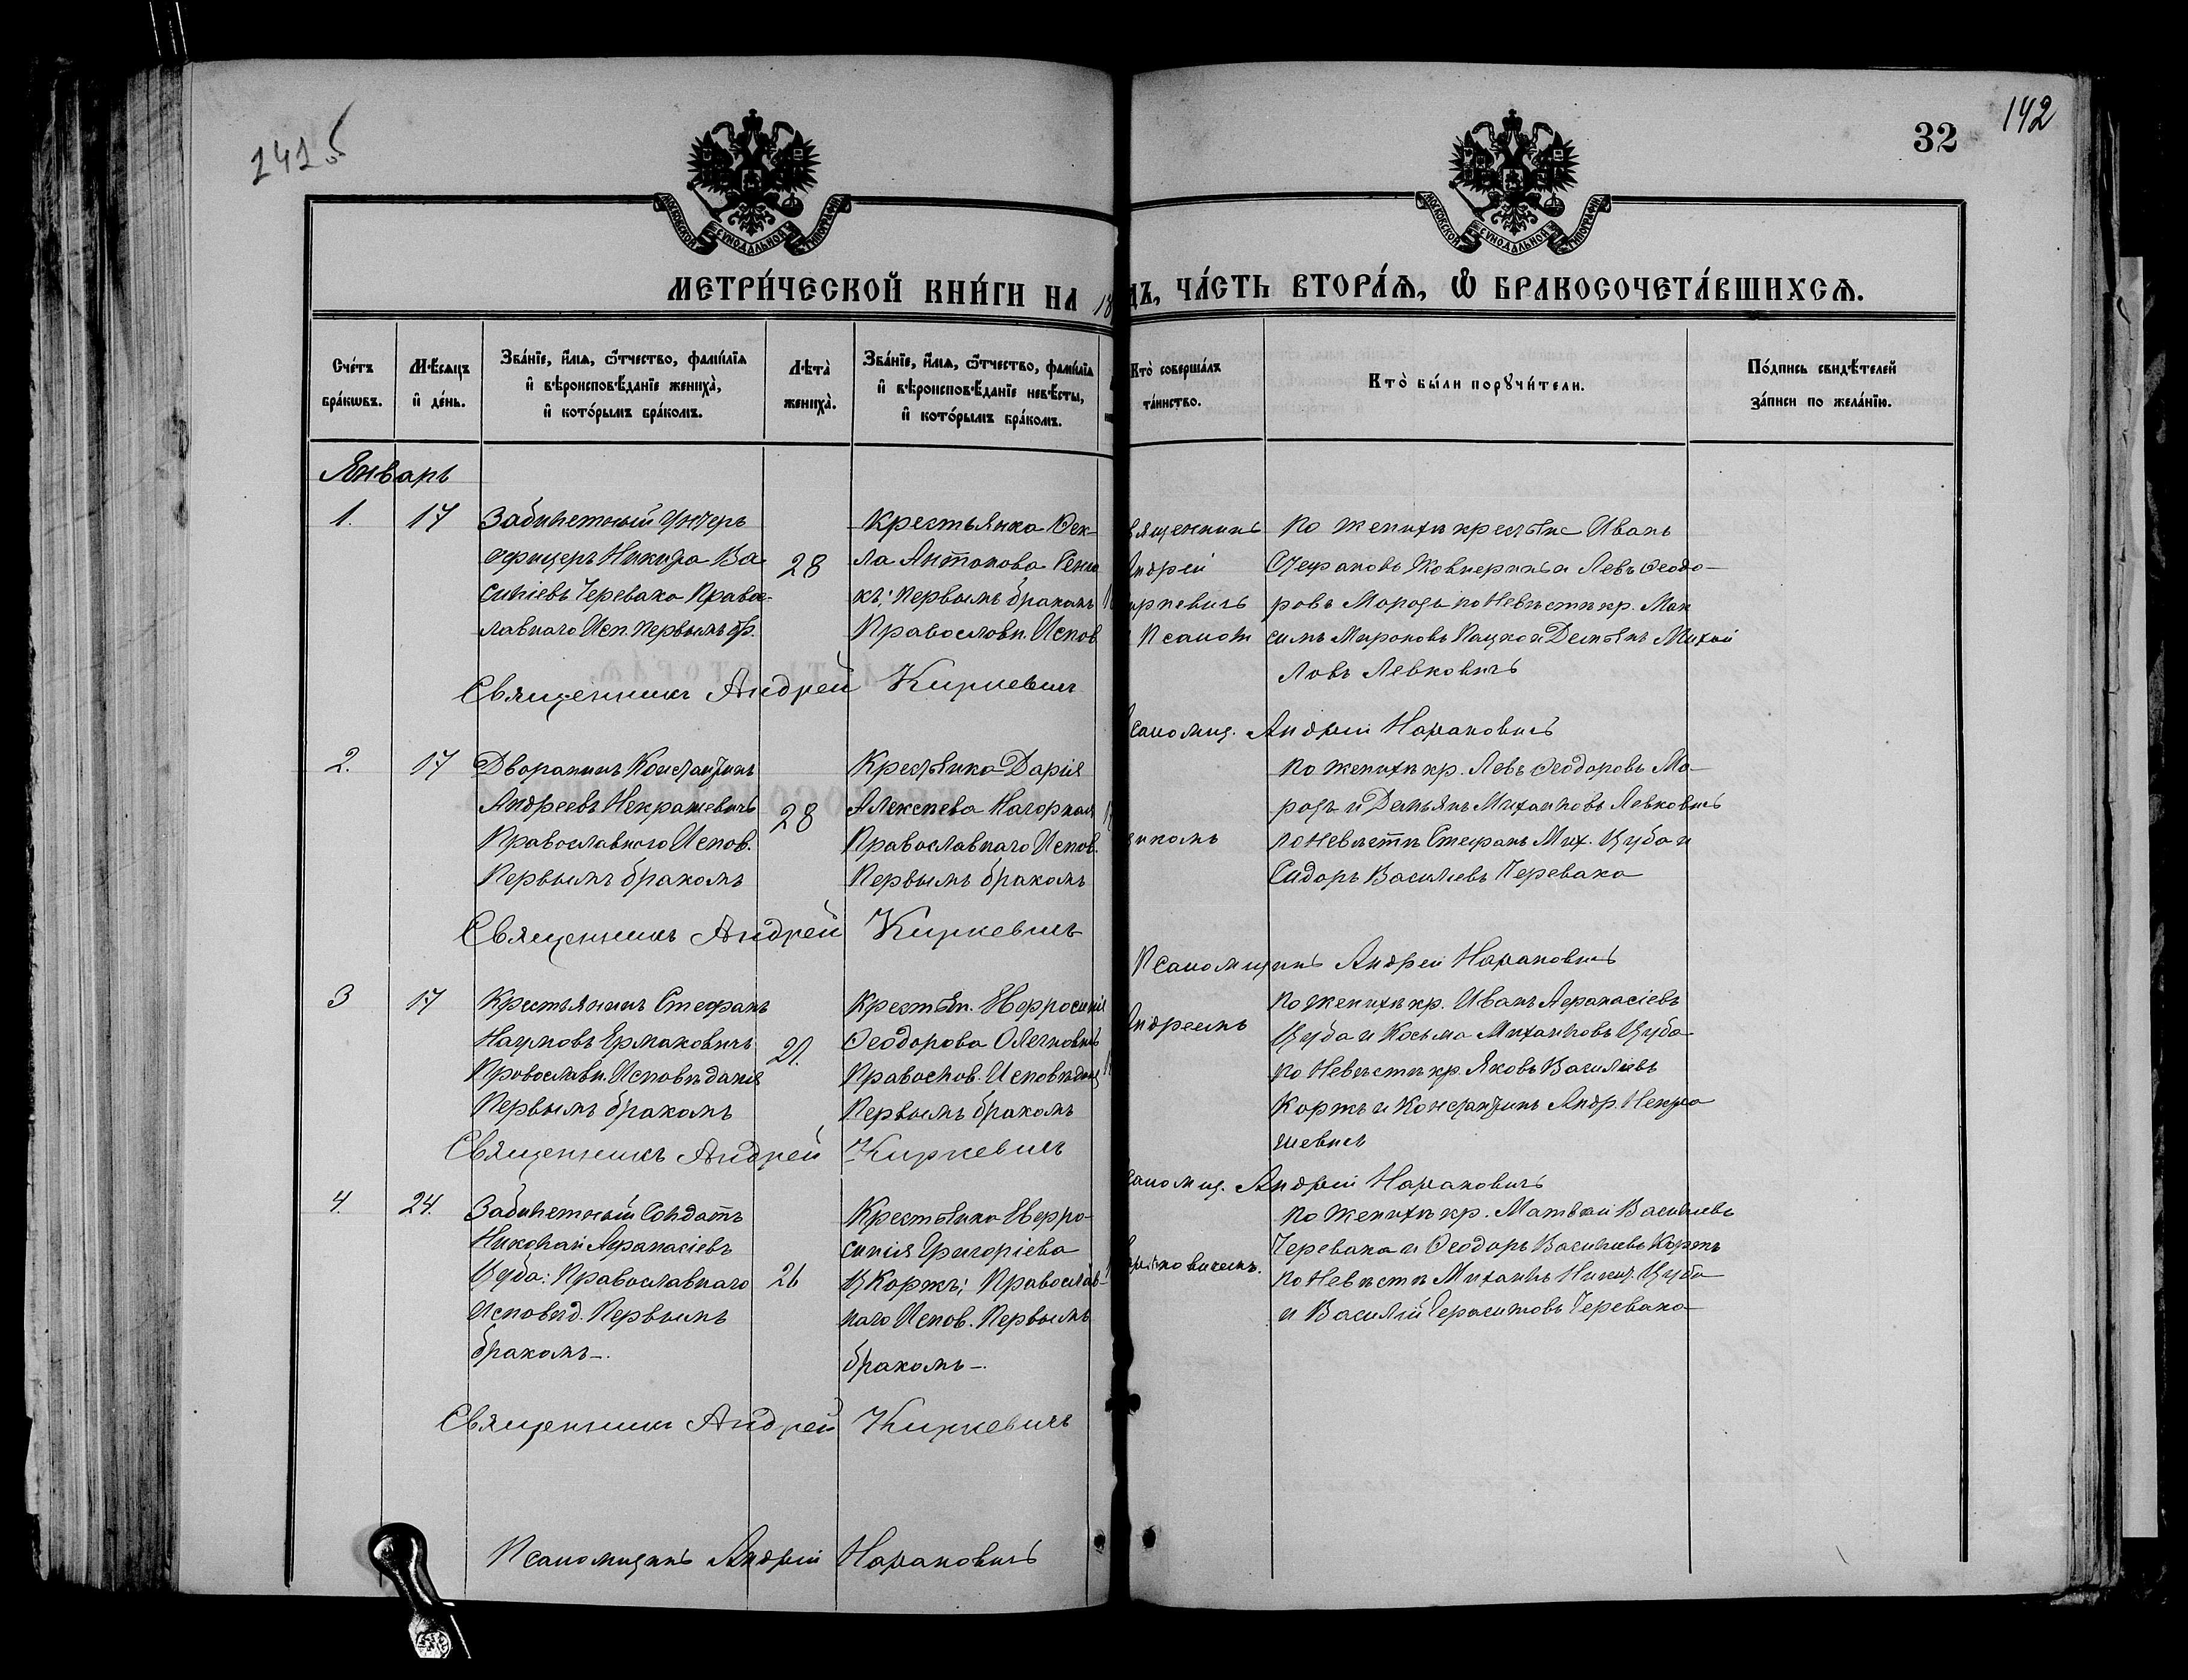 142
32
МОСКОВСКОЙ СѴНОДАЛЬНОЙ ТИПОГРАФІИ
МОСКОВСКОЙ СѴНОДАЛЬНОЙ ТИПОГРАФІИ
МЕТРИ́ЧЕСКОЙ КНИ́ГИ НА 18 ДЪ, ЧА́СТЬ ВТОРА́Ѧ, Ѽ БРАКОСОЧЕТА́ВШИХСѦ.
Сче́тъ бра́кѡвъ.
Мѣ́сѧцъ и҆ де́нь.
Зва́нїе, и҆́мѧ, ѻ҆́тчество, фами́лїѧ
и҆ вѣроисповѣ́данїе жениха̀,
и҆ кото́рымъ бра́комъ.
Лѣта̀ жениха̀.
Зва́нїе, и҆́мѧ, ѻ҆́тчество, фами́лїѧ
и҆ вѣроисповѣ́данїе невѣ́сты,
и҆ кото́рымъ бра́комъ.
Кто̀ соверша́лъ та́инство.
Кто̀ бы́ли порꙋчи́тели.
По́дпись свидѣ́телей за́писи по жела́нїю.
Январь
1.
17
Забилетный Унтеръ
офицеръ Никита Ва
силіевъ Черевако Правос-
лавнаго Исп. Первымъ бр.
28
Крестьянка Ѳек-
ла Антонова
къ: Первымъ бракомъ
Православн. Испов
вященникъ
Андрей
иркевичъ
Псалом
По женихѣ крестьяне Иванъ
Стефановъ Жовнеринъ и Левъ Ѳеодо-
ровъ Морозъ по Невѣстѣ кр. Мак
симъ Мироновъ Пацко и Демьянъ Михай
ловъ Левковичъ
Священникъ Андрей Киркевичъ
саломщ. Андрей Наранович
2.
17
Дворанинъ Константинъ
Андреевъ Некрашевичъ
Православного Испов.
Первымъ бракомъ
28
Крестьянка Дарія
Алексеева Нагорная
Православнаго Испов.
Первымъ бракомъ
никомъ
По женихѣ кр. Левъ Ѳеодоровъ Мо-
розъ и Демьянъ Михаиловъ Левковичъ
по Невѣстѣ Стефанъ Мих. Цуба и
Сидоръ Василіевъ Черевако
Священникъ Андрей Киркевичъ
Псаломщикъ Андрей Нарановичъ
3
17
Крестьянинъ Стефанъ
Наумовъ Ермаковичъ
Православн. Исповѣданія
Первымъ бракомъ
21.
Крестьян. Ефросинія
Ѳеодорова
Правослов. Исповѣдан
Первымъ бракомъ
Андреемъ
По женихѣ кр. Иванъ Афанасіевъ
Цуба и Косьма Михаиловъ Цуба
по Невѣстѣ кр. Яковъ Василіевъ
Коржъ и Константинъ Андр. Некра
шевичъ
Священникъ Андрей Киркевичъ
саломщ. Андрей Нарановичъ
4.
24.
Забилетный Солдатъ
Николай Афанасіевъ
Цуба: Православнаго
Исповѣд. Первымъ
бракомъ-.
26
Крестьянка Ефро-
синія Григоріева
Коржъ; Православ-
наго Испов. Первымъ
бракомъ-.
По женихѣ кр. Матвѣй Василіевъ
Черевака и Ѳеодоръ Василіевъ Коржъ
по Невѣстѣ Михаилъ Никит. Цуба
и Василій Герасимовъ Черевако
Священникъ Андрей Киркевичъ
Псаломщикъ Андрей Нарановичъ